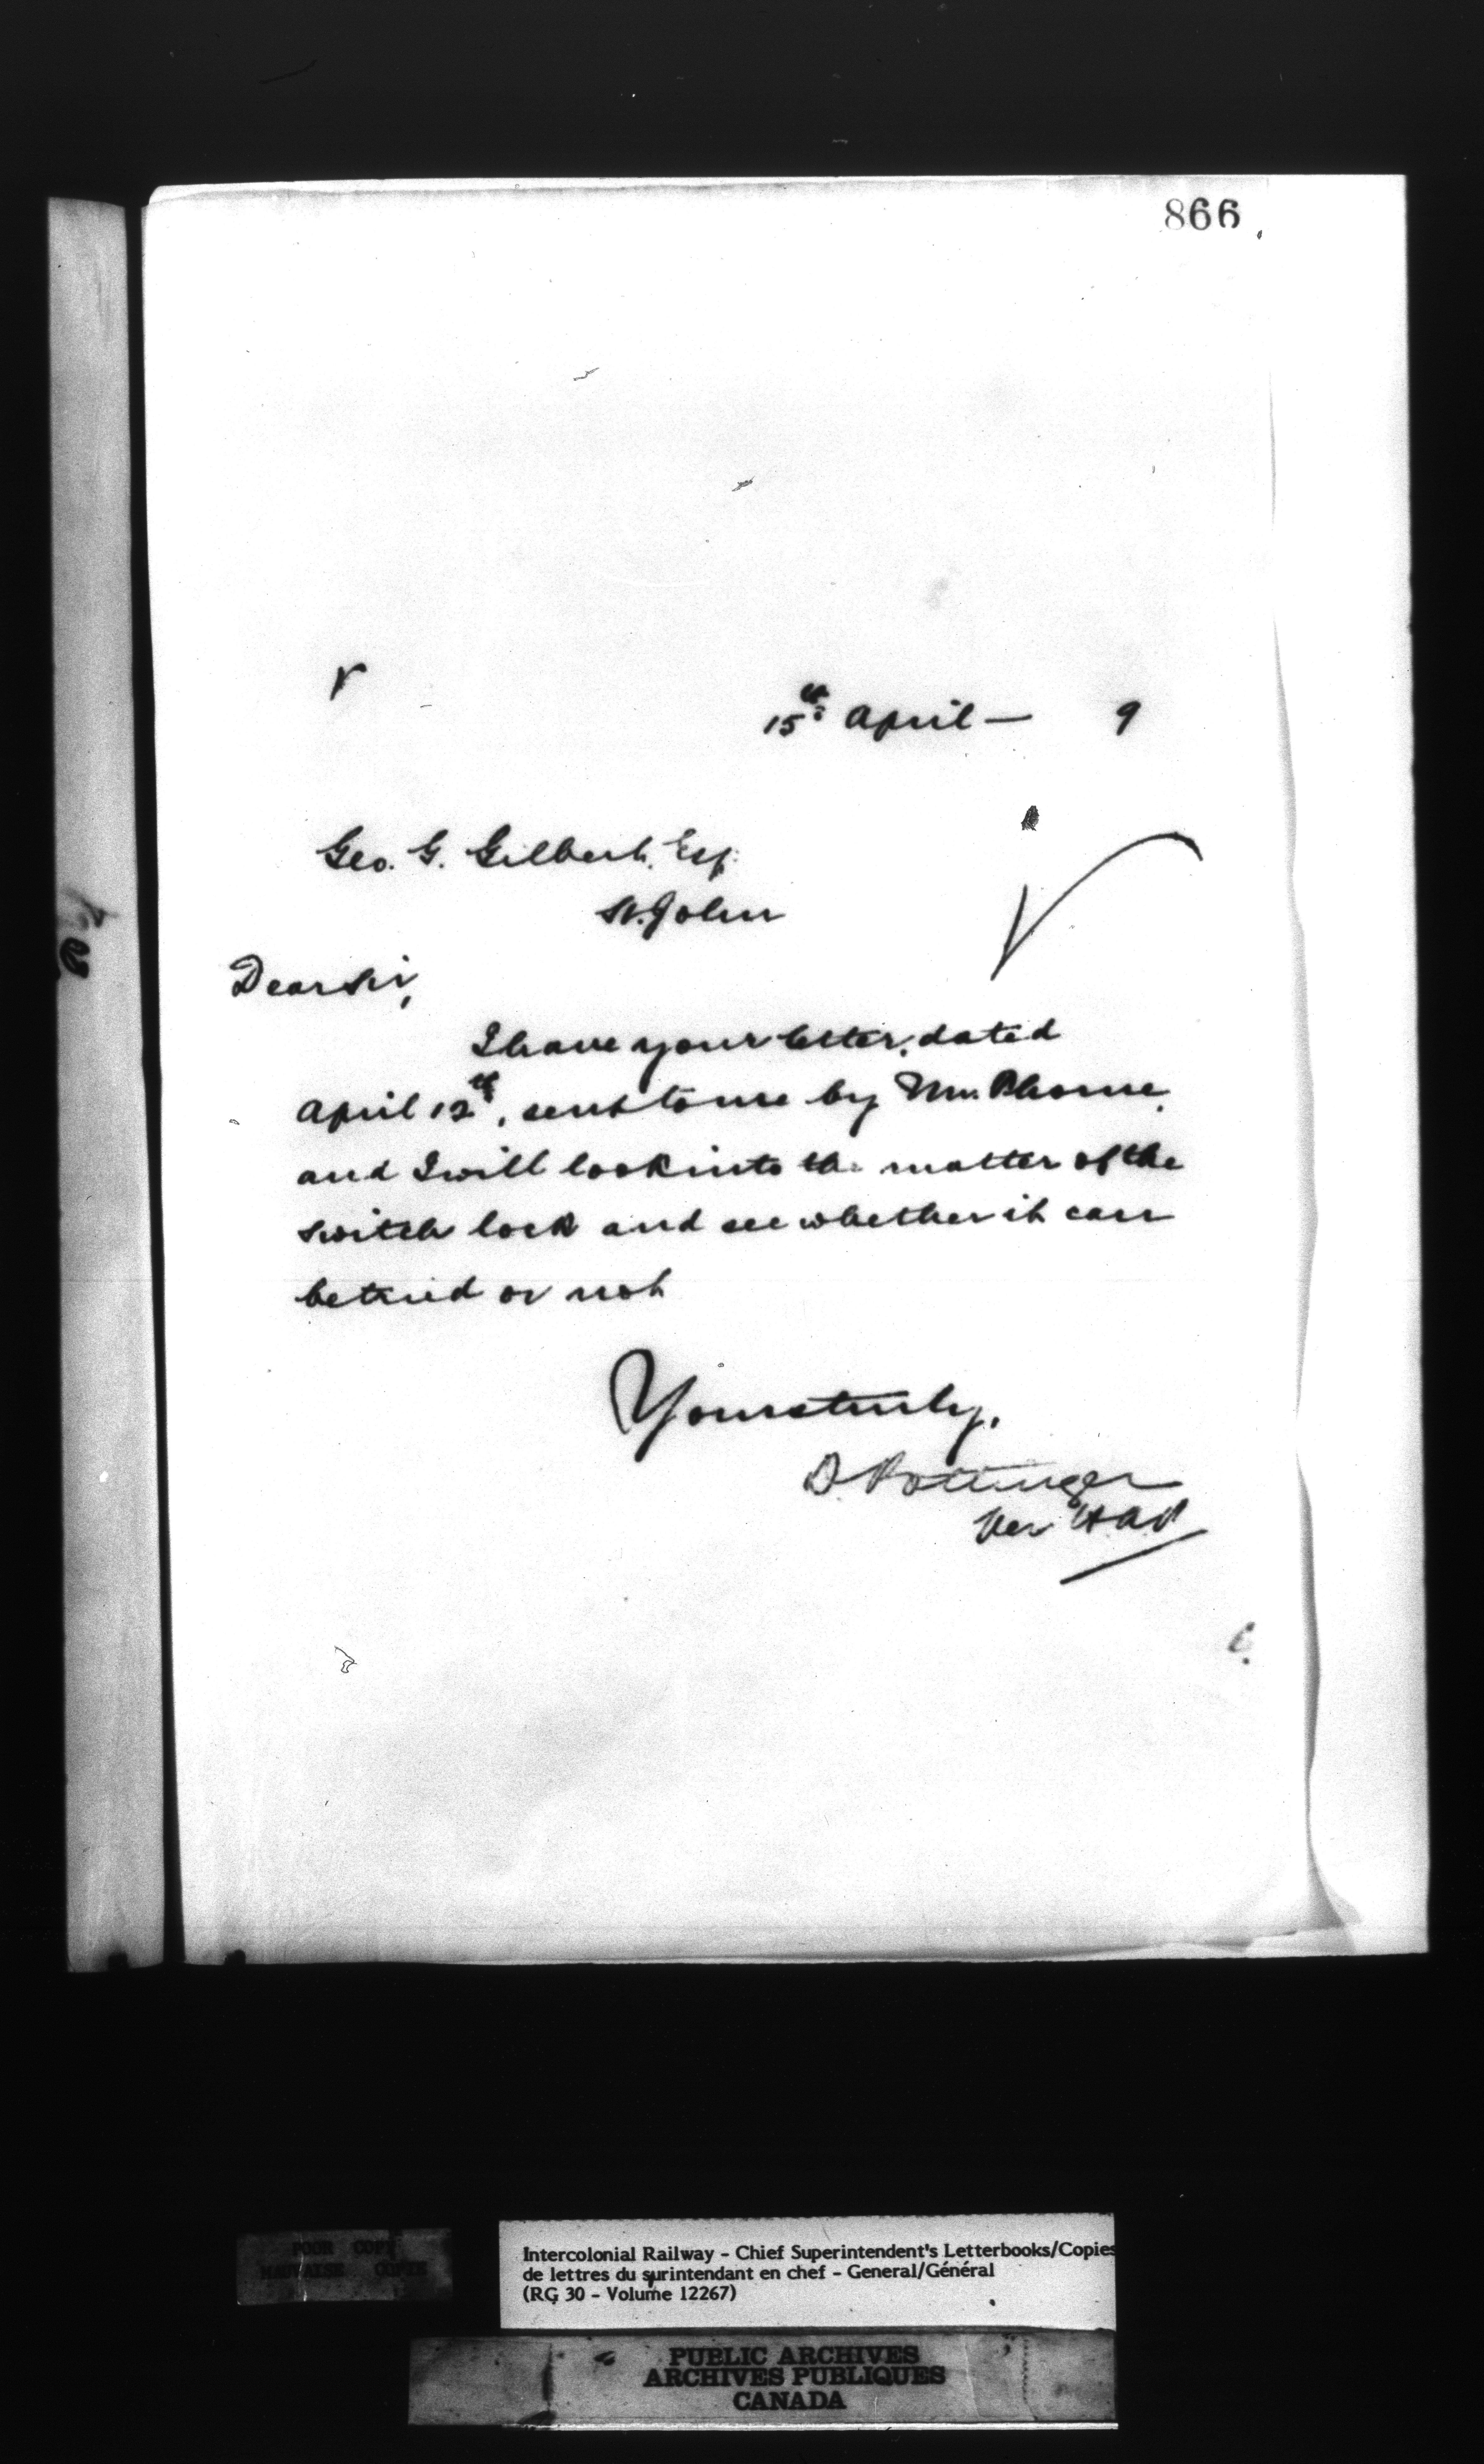 866
15th April — 9
Geo. G. Gilbert, Esq.
St. John
Dear Sir,
I have your letter, dated
April 12th, sent to me by Mr.
and I will look into the matter of the
switch lock and see whether it can
be tried or not
Yours truly,
D. Pottinger
Per
POOR COPY
MAUVAISE COPIE
Intercolonial Railway - Chief Superintendent's Letterbooks/Copies
de lettres du surintendant en chef - General/Général
(RG 30 - Volume 12267)
PUBLIC ARCHIVES
ARCHIVES PUBLIQUES
CANADA